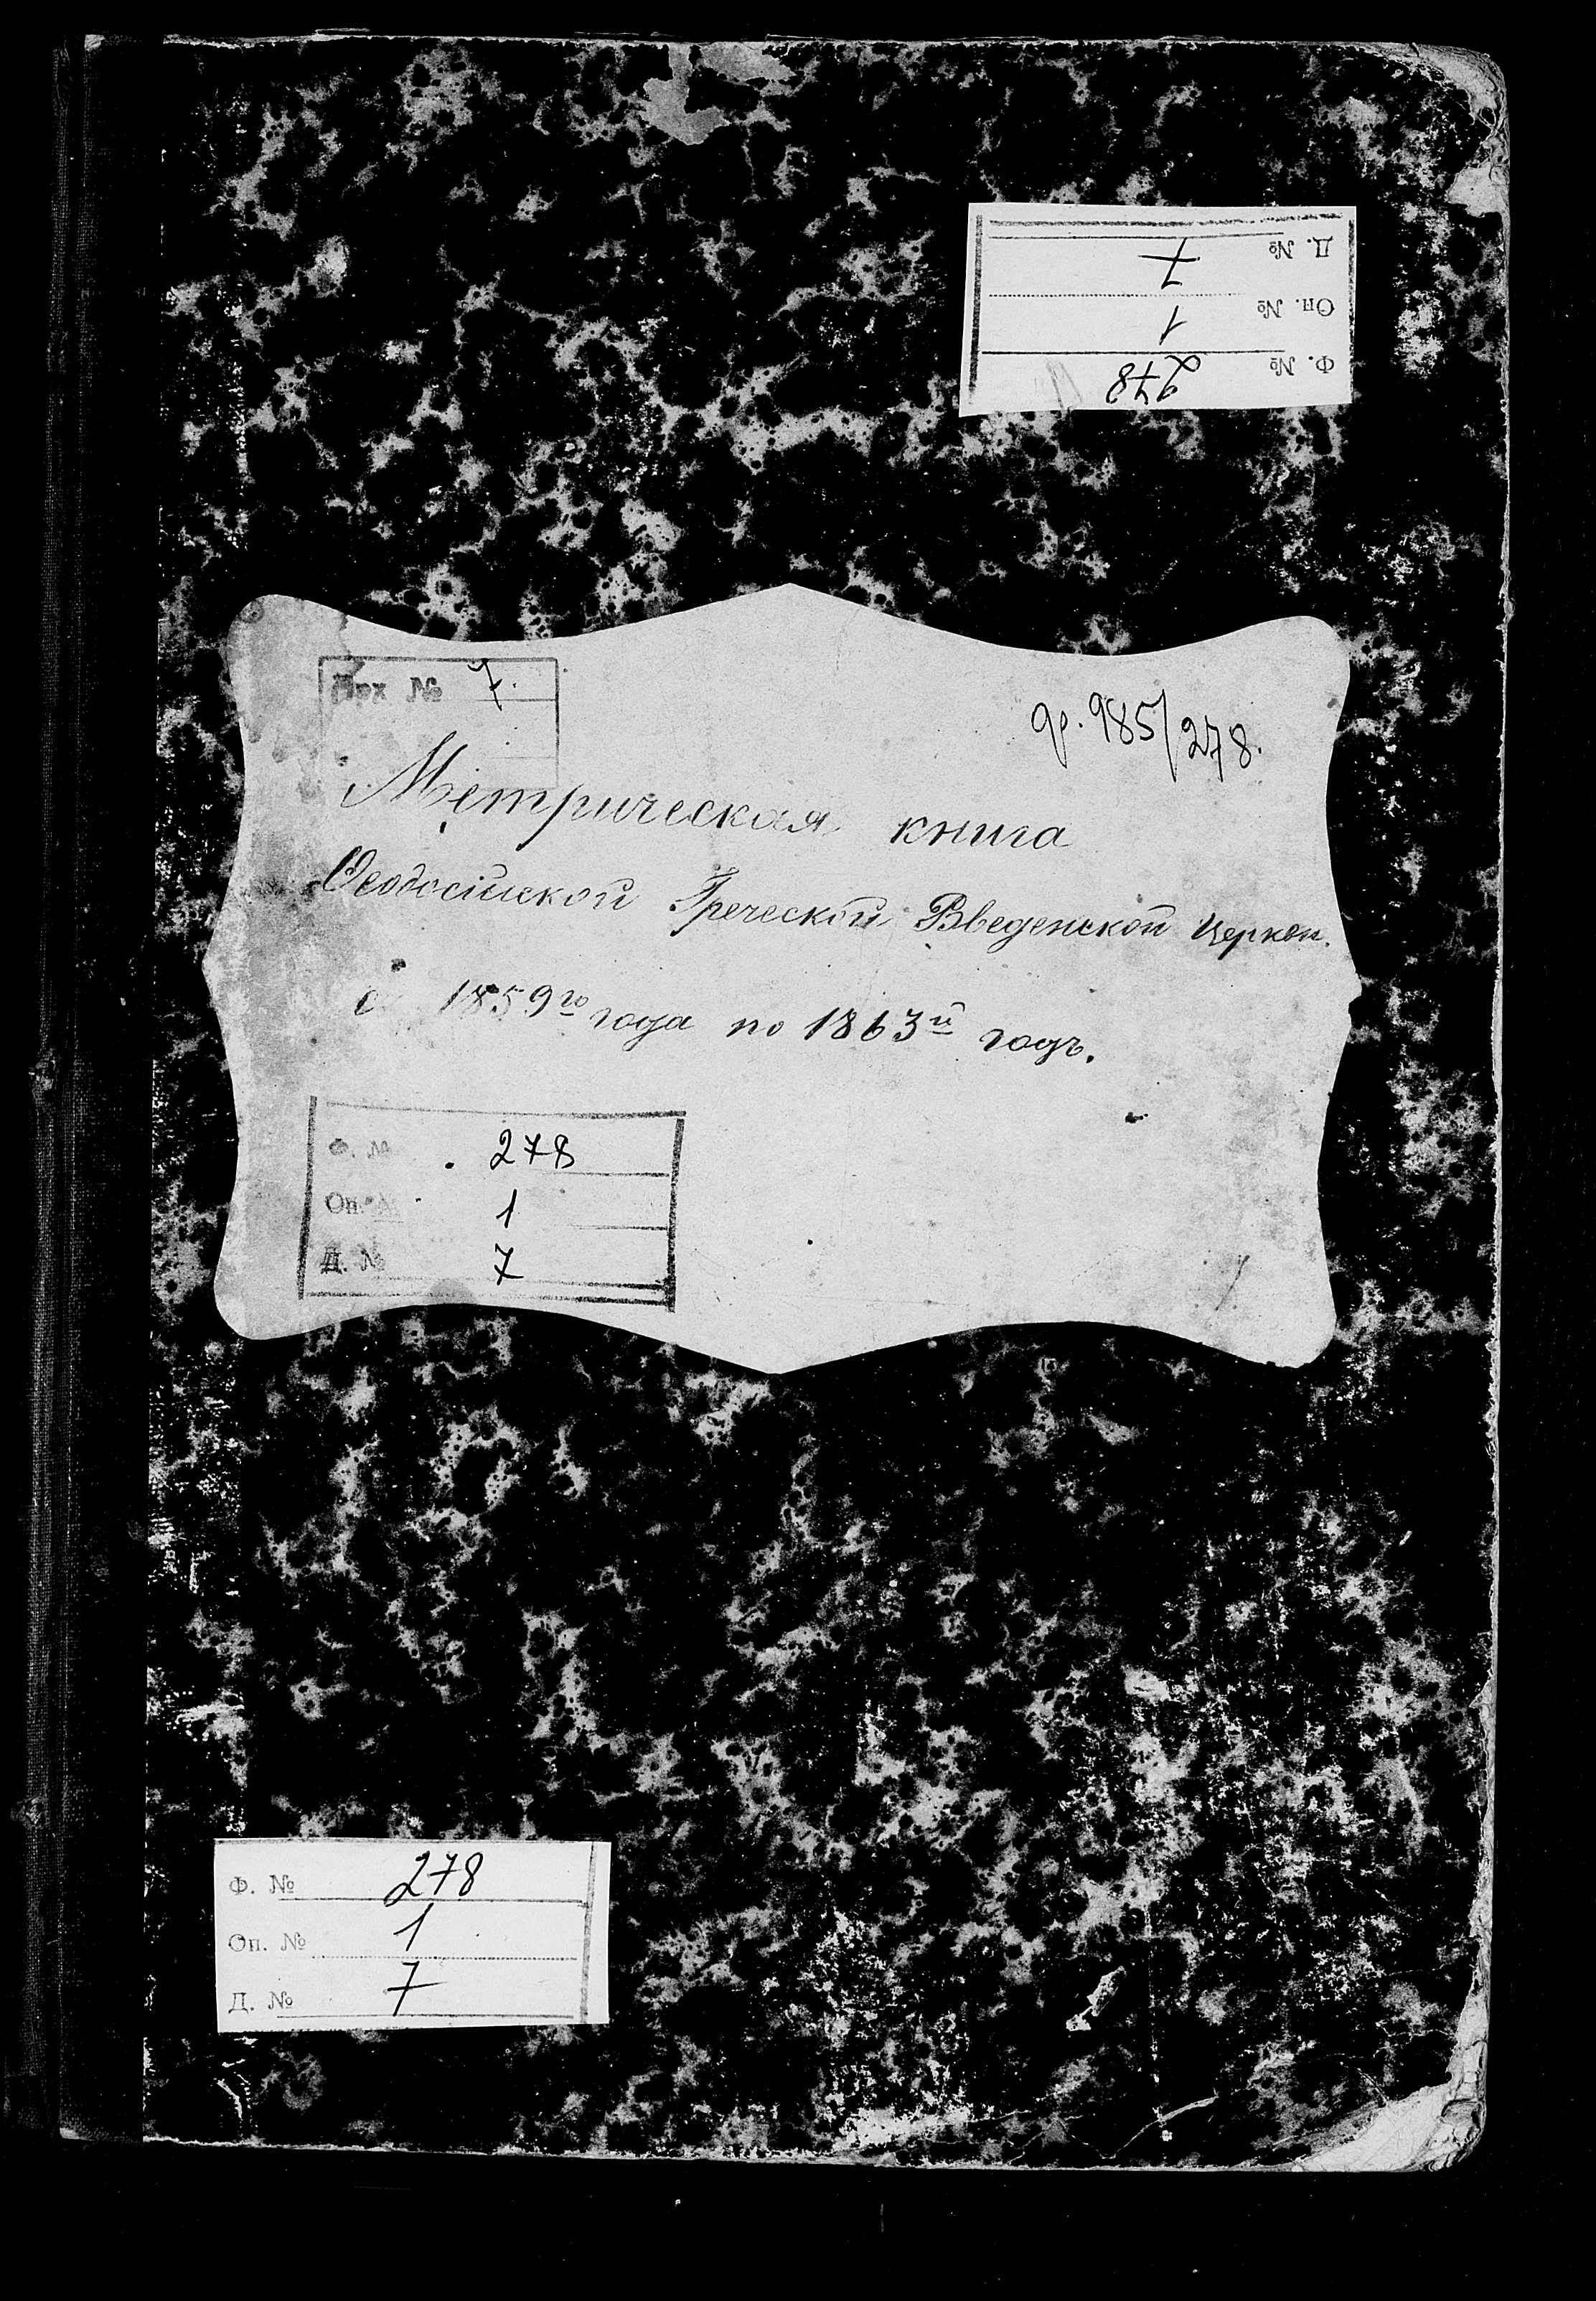 Д. № 7
Оп. № 1
Ф. № 278
Арх № 7.
ф. 985/278.
Метрическая книга
Ѳеодосійской Греческой Введенской Церкви.
с 1859го года по 1863й годъ.
Ф. № 278
Оп. № 1
Д. № 7
Ф. № 278
Оп. № 1
Д. № 7